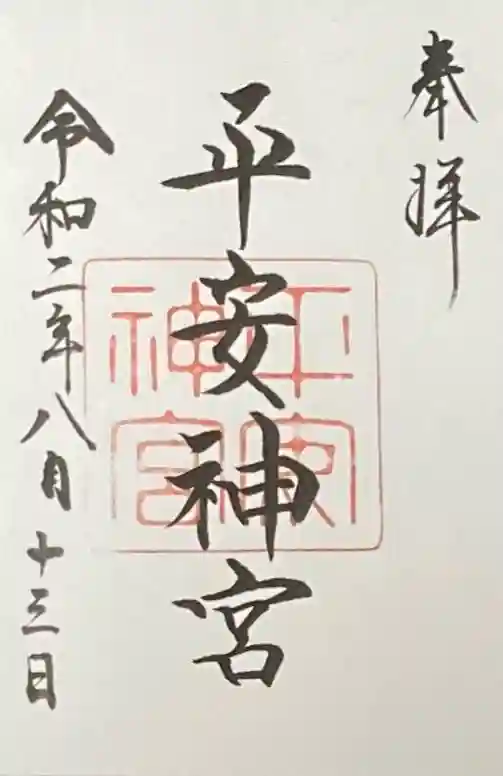 奉拝
平安神宮
平安
神宮
令和二年八月十三日